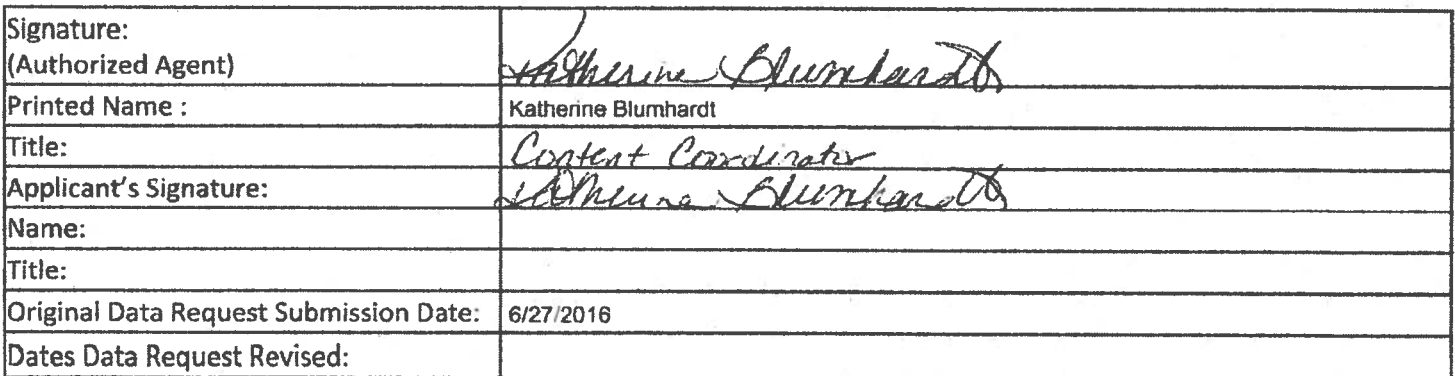 Signature:
(Authorized Agent) Katherine Blumhardt
Printed Name : Katherine Blumhardt
Title: Content Coordinator
Applicant's Signature: Katherine Blumhardt
Name:
Title:
Original Data Request Submission Date: 6/27/2016
Dates Data Request Revised: